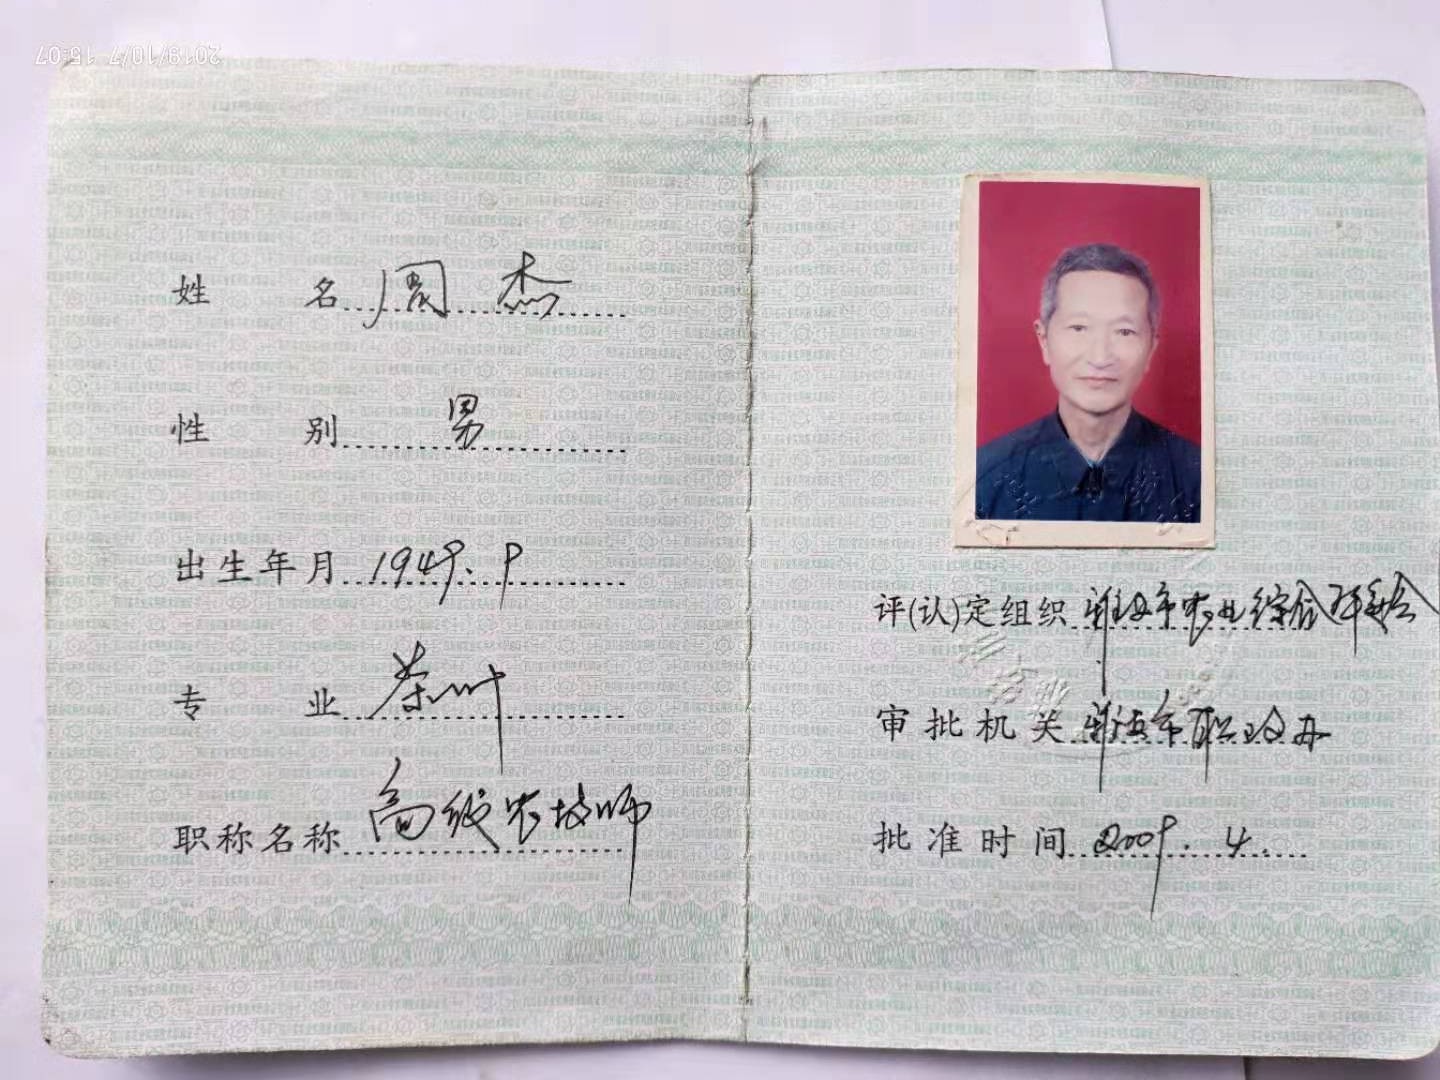 2019/10/7 15:07
姓名 周杰
性别 男
出生年月 1949.9
专业 茶叶
职称名称 高级农技师
评(认)定组织 雅安市农业综合评委会
审批机关 雅安市职改办
批准时间 2009.4.